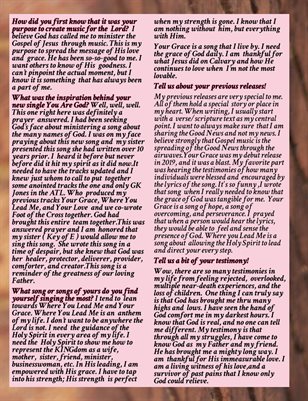 How did you first know that it was your
purpose to create music for the Lord? I
believe God has called me to minister the
Gospel of Jesus through music. This is my
purpose to spread the message of His love
and grace. He has been so-so-good to me. I
want others to know of His goodness. I
can't pinpoint the actual moment, but I
know it is something that has always been
a part of me.
What was the inspiration behind your
new single You Are God? Well, well, well.
This one right here was definitely a
prayer answered. I had been seeking
God's face about ministering a song about
the many names of God. I was on my face
praying about this new song and my sister
presented this song she had written over 10
years prior. I heard it before but never
before did it hit my spirit as it did now.It
needed to have the tracks updated and I
knew just whom to call to put together
some anointed tracks the one and only GK
Jones in the ATL. Who produced my
previous tracks Your Grace, Where You
Lead Me, and Your Love and we co-wrote
Foot of the Cross together. God had
brought this entire team together.This was
answered prayer and I am honored that
my sister ( Kry of F ) would allow me to
sing this song. She wrote this song in a
time of despair, but she knew that God was
her healer, protector, deliverer, provider,
comforter, and creator.This song is a
reminder of the greatness of our loving
Father.
What song or songs of yours do you find
yourself singing the most? I tend to lean
towards Where You Lead Me and Your
Grace. Where You Lead Me is an anthem
of my life. I don't want to be anywhere the
Lord is not. I need the guidance of the
Holy Spirit in every area of my life. I
need the Holy Spirit to show me how to
represent the KINGdom as a wife,
mother, sister, friend, minister,
businesswoman, etc. In His leading, I am
empowered with His grace. I have to tap
into his strength; His strength is perfect
when my strength is gone. I know that I
am nothing without him, but everything
with Him.
Your Grace is a song that I live by. I need
the grace of God daily. I am thankful for
what Jesus did on Calvary and how He
continues to love when I'm not the most
lovable.
Tell us about your previous releases!
My previous releases are very special to me.
All of them hold a special story or place in
my heart. When writing, I usually start
with a verse/ scripture text as my central
point. I want to always make sure that I am
sharing the Good News and not my news. I
believe strongly that Gospel music is the
spreading of the Good News through the
airwaves.Your Grace was my debut release
in 2019, and it was a blast. My favorite part
was hearing the testimonies of how many
individuals were blessed and encouraged by
the lyrics of the song. It's so funny..I wrote
that song when I really needed to know that
the grace of God was tangible for me. Your
Grace is a song of hope, a song of
overcoming, and perseverance. I prayed
that when a person would hear the lyrics,
they would be able to feel and sense the
presence of God. Where you Lead Me is a
song about allowing the Holy Spirit to lead
and direct your every step.
Tell us a bit of your testimony!
Wow, there are so many testimonies in
my life from feeling rejected, overlooked,
multiple near-death experiences, and the
loss of children. One thing I can truly say
is that God has brought me thru many
highs and lows. I have seen the hand of
God comfort me in my darkest hours. I
know that God is real, and no one can tell
me different. My testimony is that
through all my struggles, I have come to
know God as my Father and my friend.
He has brought me a mighty long way. I
am thankful for His immeasurable love. I
am a living witness of his love,and a
survivor of past pains that I know only
God could relieve.